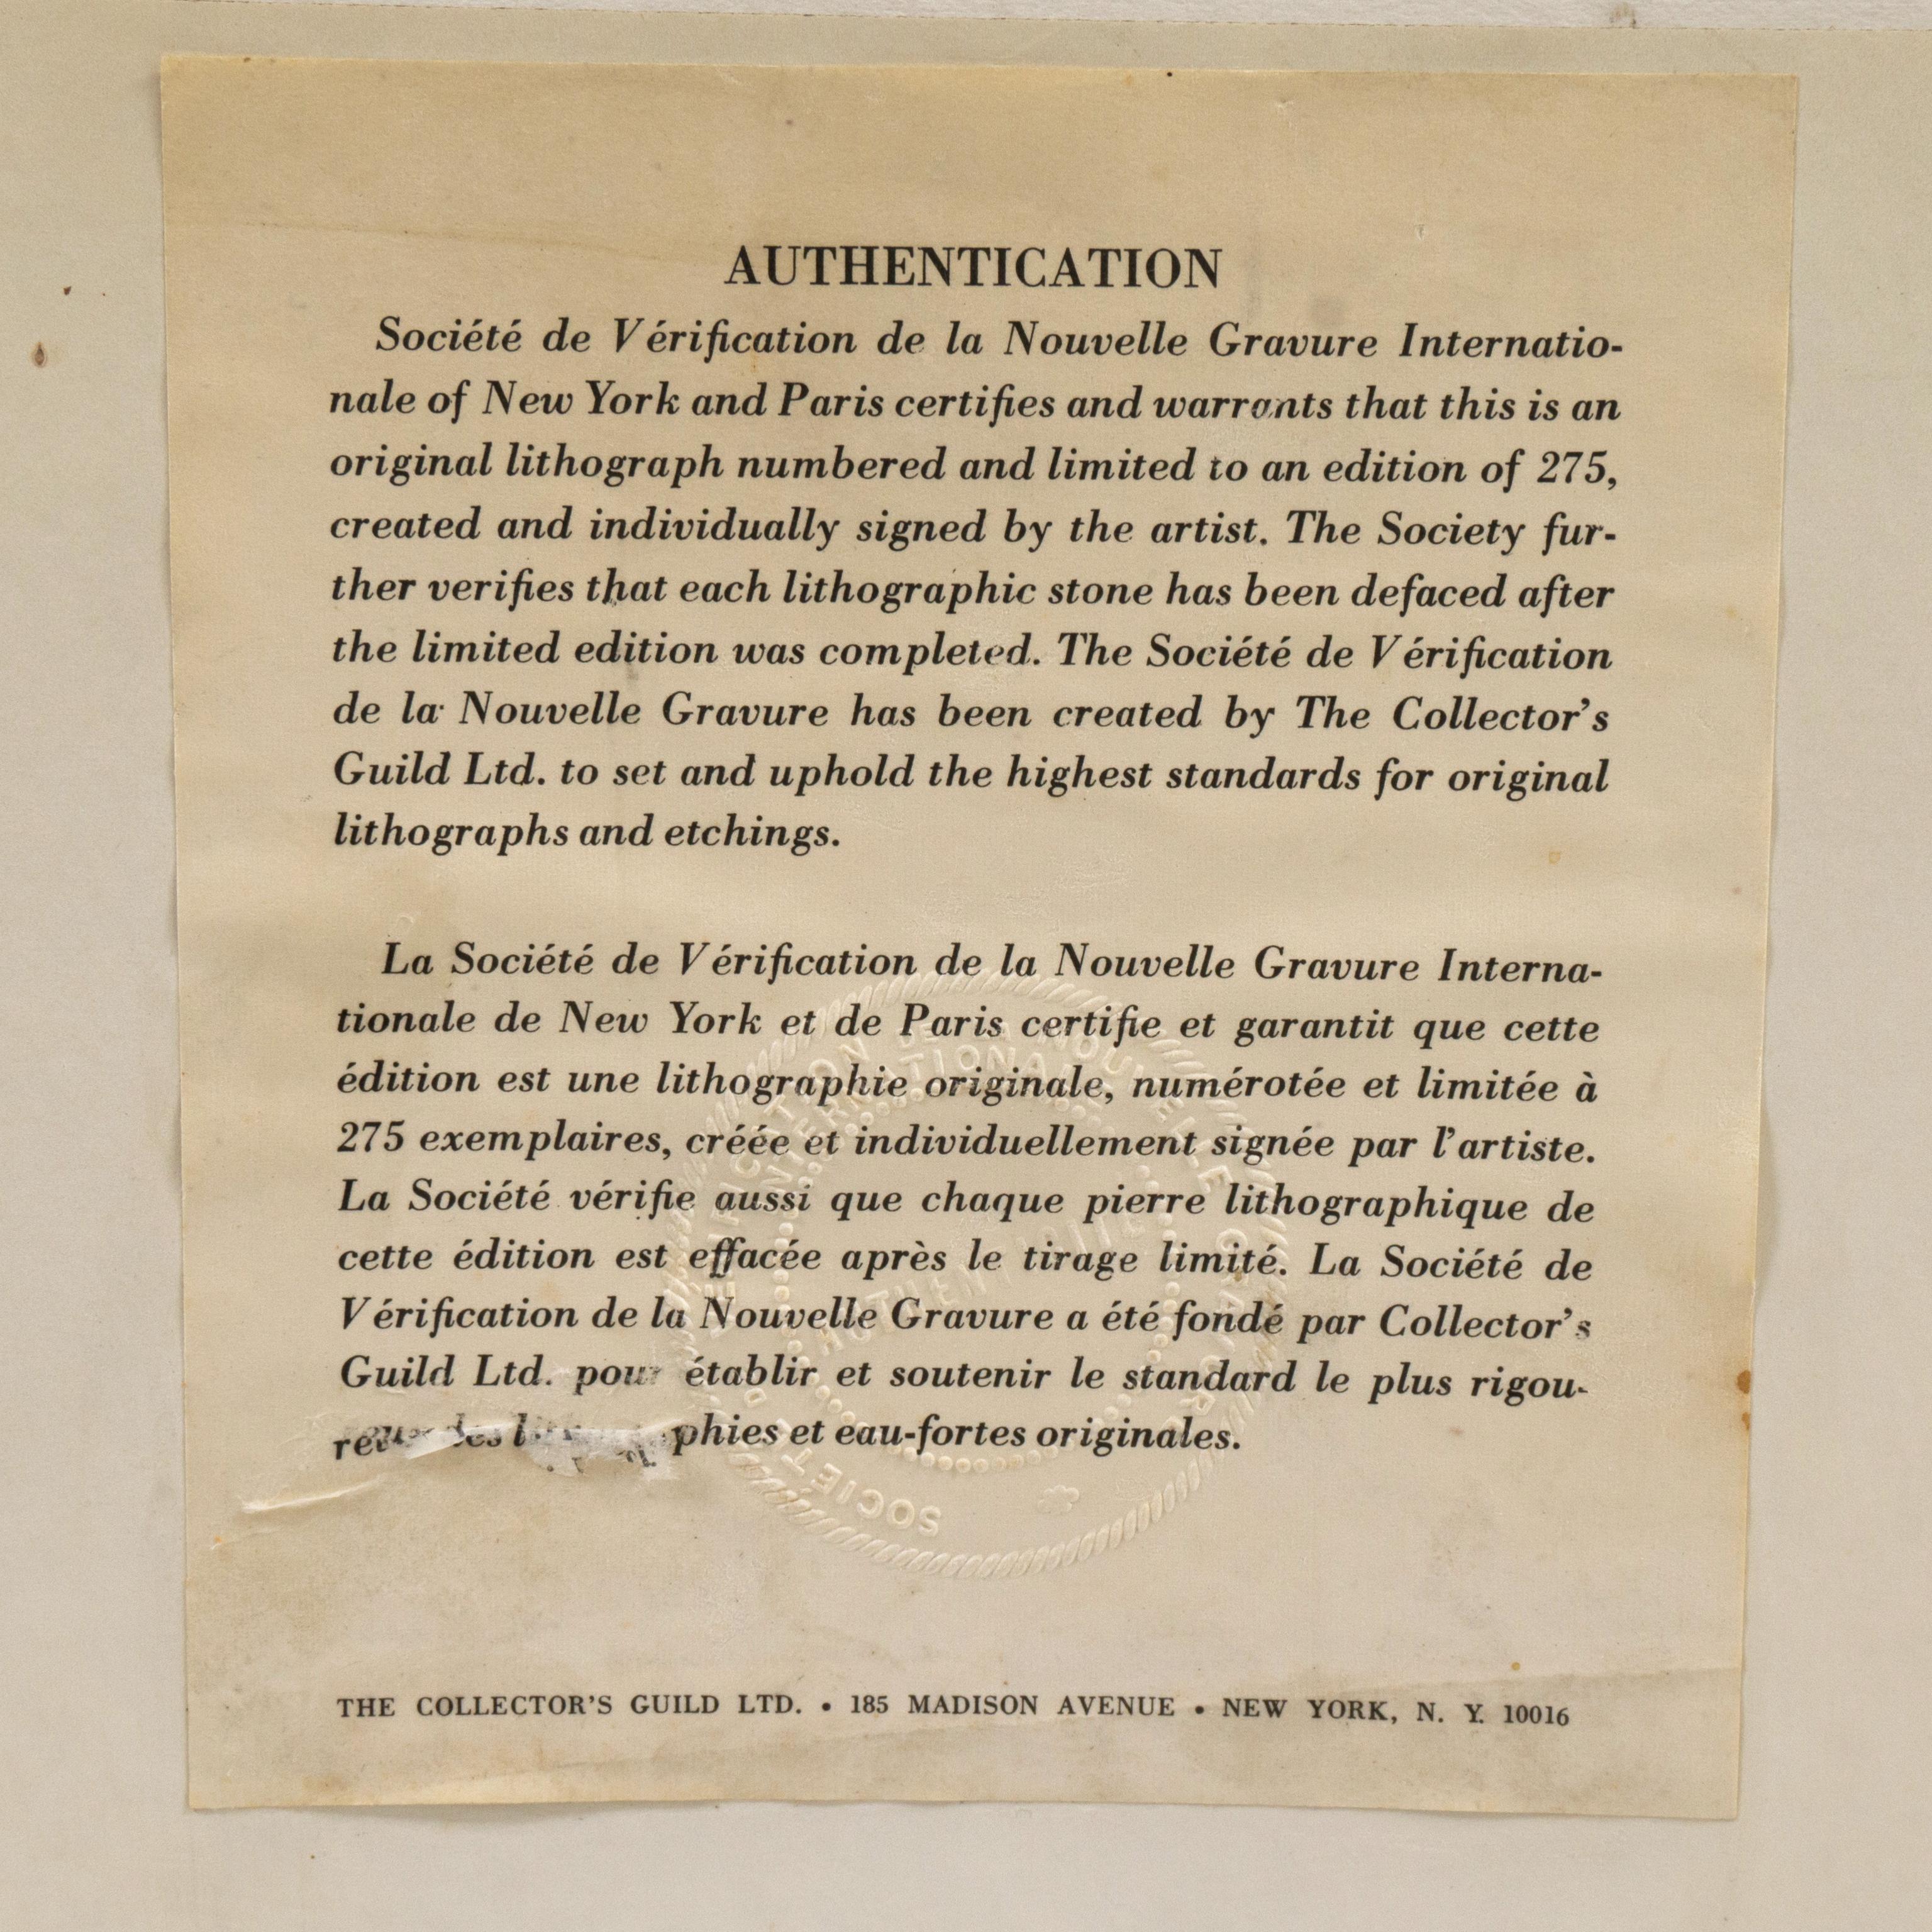 AUTHENTICATION
Société de Vérification de la Nouvelle Gravure Internatio-
nale of New York and Paris certifies and warrants that this is an
original lithograph numbered and limited to an edition of 275,
created and individually signed by the artist. The Society fur-
ther verifies that each lithographic stone has been defaced after
the limited edition was completed. The Société de Vérification
de la Nouvelle Gravure has been created by The Collector's
Guild Ltd. to set and uphold the highest standards for original
lithographs and etchings.
La Société de Vérification de la Nouvelle Gravure Interna-
tionale de New York et de Paris certifie et garantit que cette
édition est une lithographie originale, numérotée et limitée à
275 exemplaires, créée et individuellement signée par l'artiste.
La Société vérifie aussi que chaque pierre lithographique de
cette édition est effacée après le tirage limité. La Société de
Vérification de la Nouvelle Gravure a été fondé par Collector's
Guild Ltd. pour établir et soutenir le standard le plus rigou-
phies et eau-fortes originales.
SOCIETE
THE COLLECTOR'S GUILD LTD. • 185 MADISON AVENUE • NEW YORK, N. Y. 10016